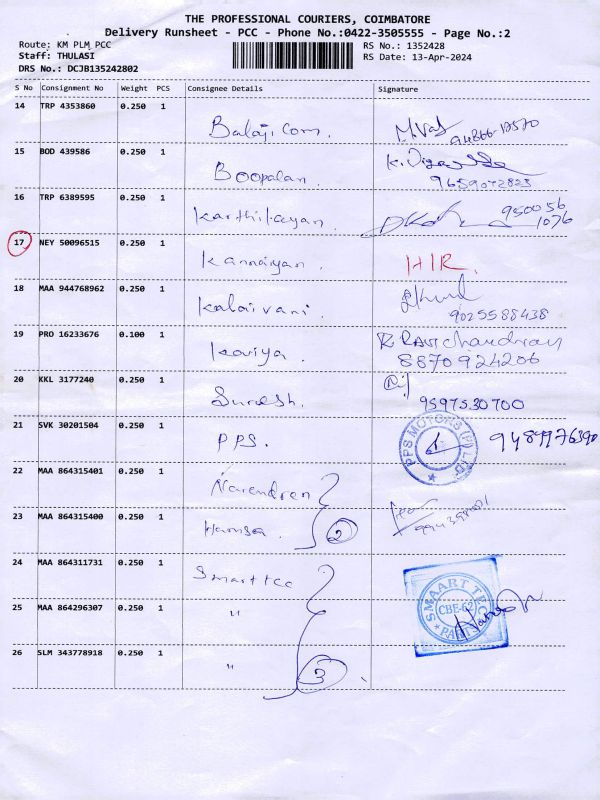 THE PROFESSIONAL COURIERS, COIMBATORE
Delivery Runsheet - PCC - Phone No.:0422-3505555 - Page No.:2
Route: KM PLM PCC RS No.: 1352428
Staff: THULASI RS Date: 13-Apr-2024
DRS No.: DCJB135242802
S No Consignment No Weight PCS Consignee Details Signature
14 TRP 4353860 0.250 1 Balaji Com.
15 BOD 439586 0.250 1 Boopalan. 9659072823
16 TRP 6389595 0.250 1 Karthikayan 950056
1076
17 NEY 50096515 0.250 1 Kannaiyan. HIR.
18 MAA 944768962 0.250 1 Kalaivani 9025588438
19 PRO 16233676 0.100 1 Kaviya. R RAVIchandran
8870924206
20 KKL 3177240 0.250 1 Suresh. 9597530700
21 SVK 30201504 0.250 1 PPS. PPS MOTORS (P) LTD 9489976390
22 MAA 864315401 0.250 1 Narendren
23 MAA 864315400 0.250 1 Hamsa. 2
24 MAA 864311731 0.250 1 Smarttec SMAART TEC
25 MAA 864296307 0.250 1 " CBE-62
PARTS
26 SLM 343778918 0.250 1 " 3